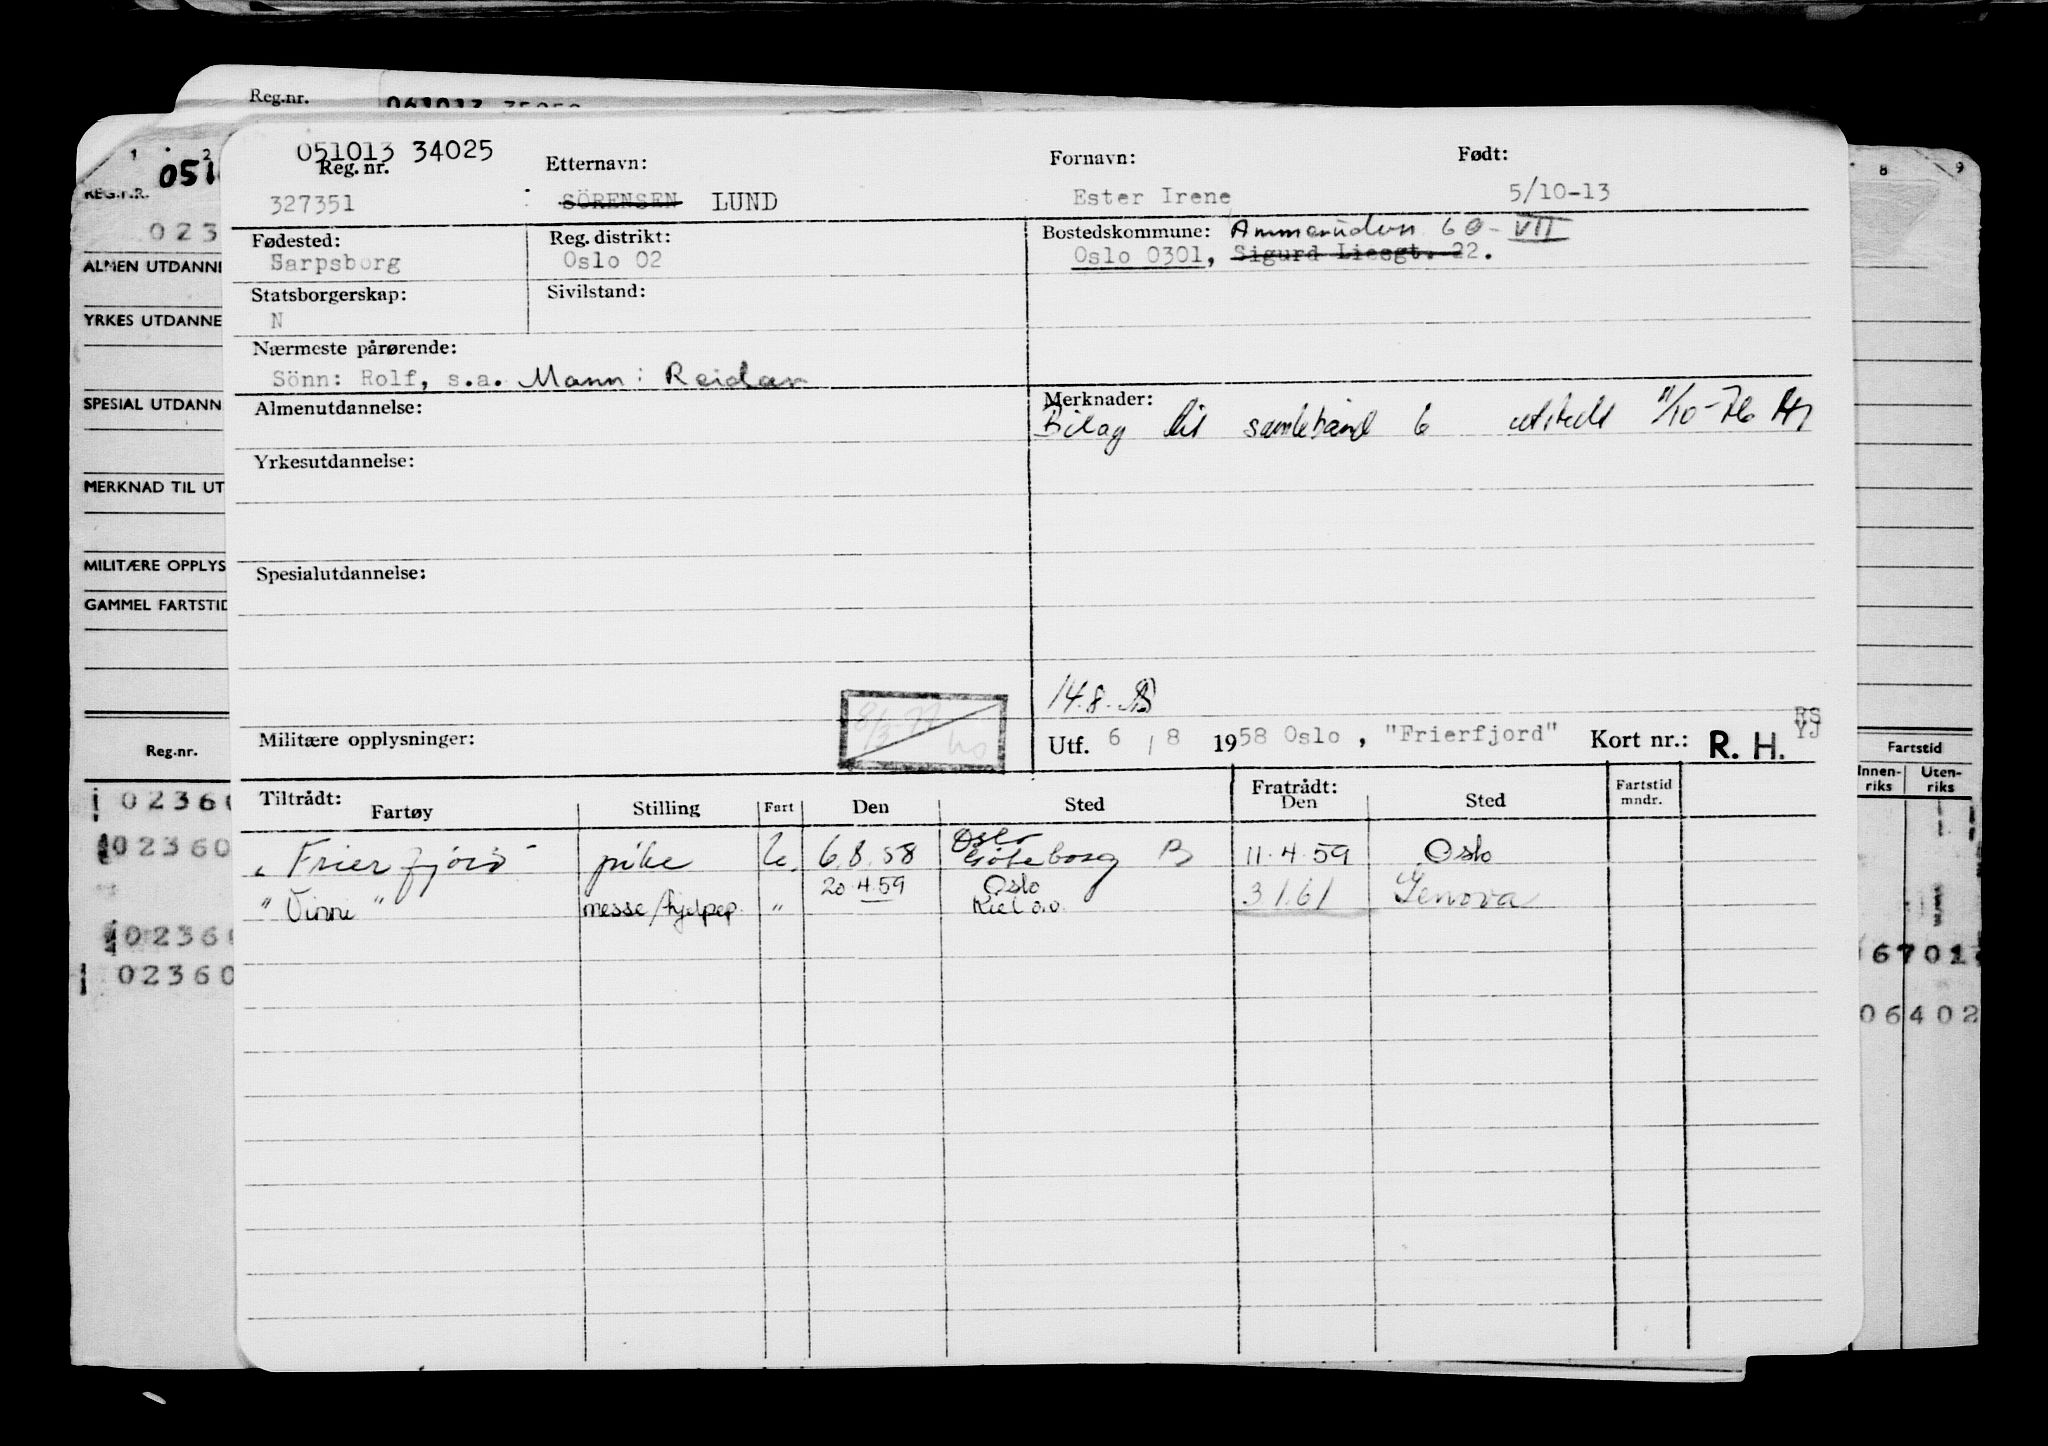 Reg.nr.
1 2 051013 34025 Etternavn: Fornavn: Født: 8 9
REG.NR. 051 Reg. nr.
327351 SÖRENSEN LUND Ester Irene 5/10-13
023 Fødested: Reg. distrikt: Bostedskommune: Ammerudvn 60-VII
ALMEN UTDANNE Sarpsborg Oslo 02 Oslo 0301, Sigurd Liesgt. 22.
Statsborgerskap: Sivilstand:
YRKES UTDANNE N
Nærmeste pårørende:
Sönn: Rolf, s.a. Mann: Reidar
SPESIAL UTDANN Almenutdannelse: Merknader:
Bilag til samlebånd 6 utstedt 11/10-76
Yrkesutdannelse:
MERKNAD TIL UT
MILITÆRE OPPLYS Spesialutdannelse:
GAMMEL FARTSTID
14.8.
8/3-77
Militære opplysninger: Utf. 6 / 8 1958 Oslo, "Frierfjord" Kort nr.: R. H. RS YJ
Reg.nr. Fartstid
Innenriks Utenriks
Tiltrådt: Fratrådt:
Fartøy Stilling Fart Den Sted Den Sted Fartstid mndr.
02360
"Frierfjord" pike U. 6.8.58 Oslo Göteborg B 11.4.59 Oslo
02360
"Vinni" messe/hjelpep. " 20.4.59 Oslo Kiel a.o. 3/1.61 Genova
02360 6701
02360 06402